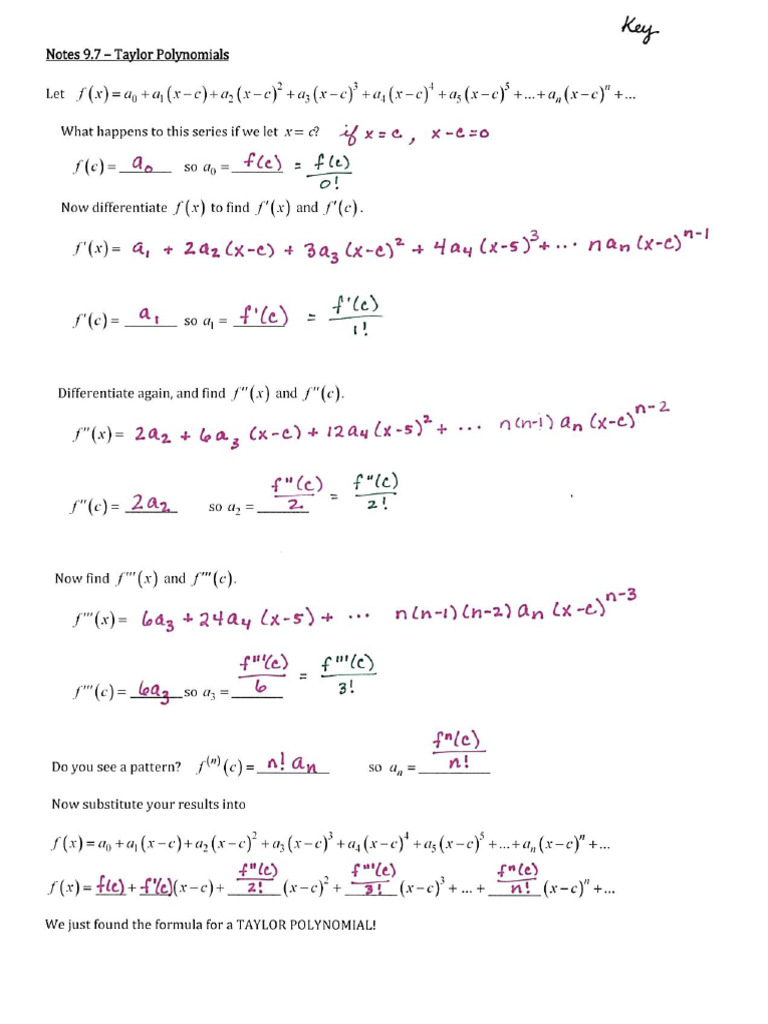 Key
Notes 9.7 – Taylor Polynomials
Let f(x) = a₀ + a₁(x−c) + a₂(x−c)² + a₃(x−c)³ + a₄(x−c)⁴ + a₅(x−c)⁵ + ... + aₙ(x−c)ⁿ + ...
What happens to this series if we let x = c? if x = c, x−c=0
f(c) = a₀ so a₀ = f(c) = f(c)/0!
Now differentiate f(x) to find f'(x) and f'(c).
f'(x) = a₁ + 2a₂(x−c) + 3a₃(x−c)² + 4a₄(x−5)³ + ··· naₙ(x−c)ⁿ⁻¹
f'(c) = a₁ so a₁ = f'(c) = f'(c)/1!
Differentiate again, and find f''(x) and f''(c).
f''(x) = 2a₂ + 6a₃(x−c) + 12a₄(x−5)² + ··· n(n−1)aₙ(x−c)ⁿ⁻²
f''(c) = 2a₂ so a₂ = f''(c)/2 = f''(c)/2!
Now find f'''(x) and f'''(c).
f'''(x) = 6a₃ + 24a₄(x−5) + ··· n(n−1)(n−2)aₙ(x−c)ⁿ⁻³
f'''(c) = 6a₃ so a₃ = f'''(c)/6 = f'''(c)/3!
Do you see a pattern? f⁽ⁿ⁾(c) = n! aₙ so aₙ = fⁿ(c)/n!
Now substitute your results into
f(x) = a₀ + a₁(x−c) + a₂(x−c)² + a₃(x−c)³ + a₄(x−c)⁴ + a₅(x−c)⁵ + ... + aₙ(x−c)ⁿ + ...
f(x) = f(c) + f'(c)(x−c) + f''(c)/2! (x−c)² + f'''(c)/3! (x−c)³ + ... + fⁿ(c)/n! (x−c)ⁿ + ...
We just found the formula for a TAYLOR POLYNOMIAL!